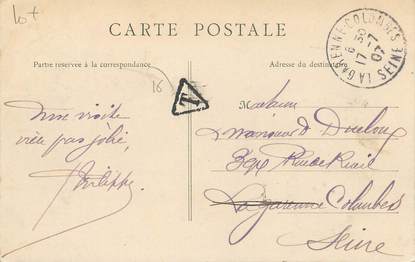 lot
CARTE POSTALE
Partie réservée à la correspondance
Adresse du destinataire
LA GARENNE-COLOMBES SEINE
17 -7
07
16
T
une visite
pas jolie,
Philippe
Madame
Rue de Rueil
La Garenne Colombes
Seine